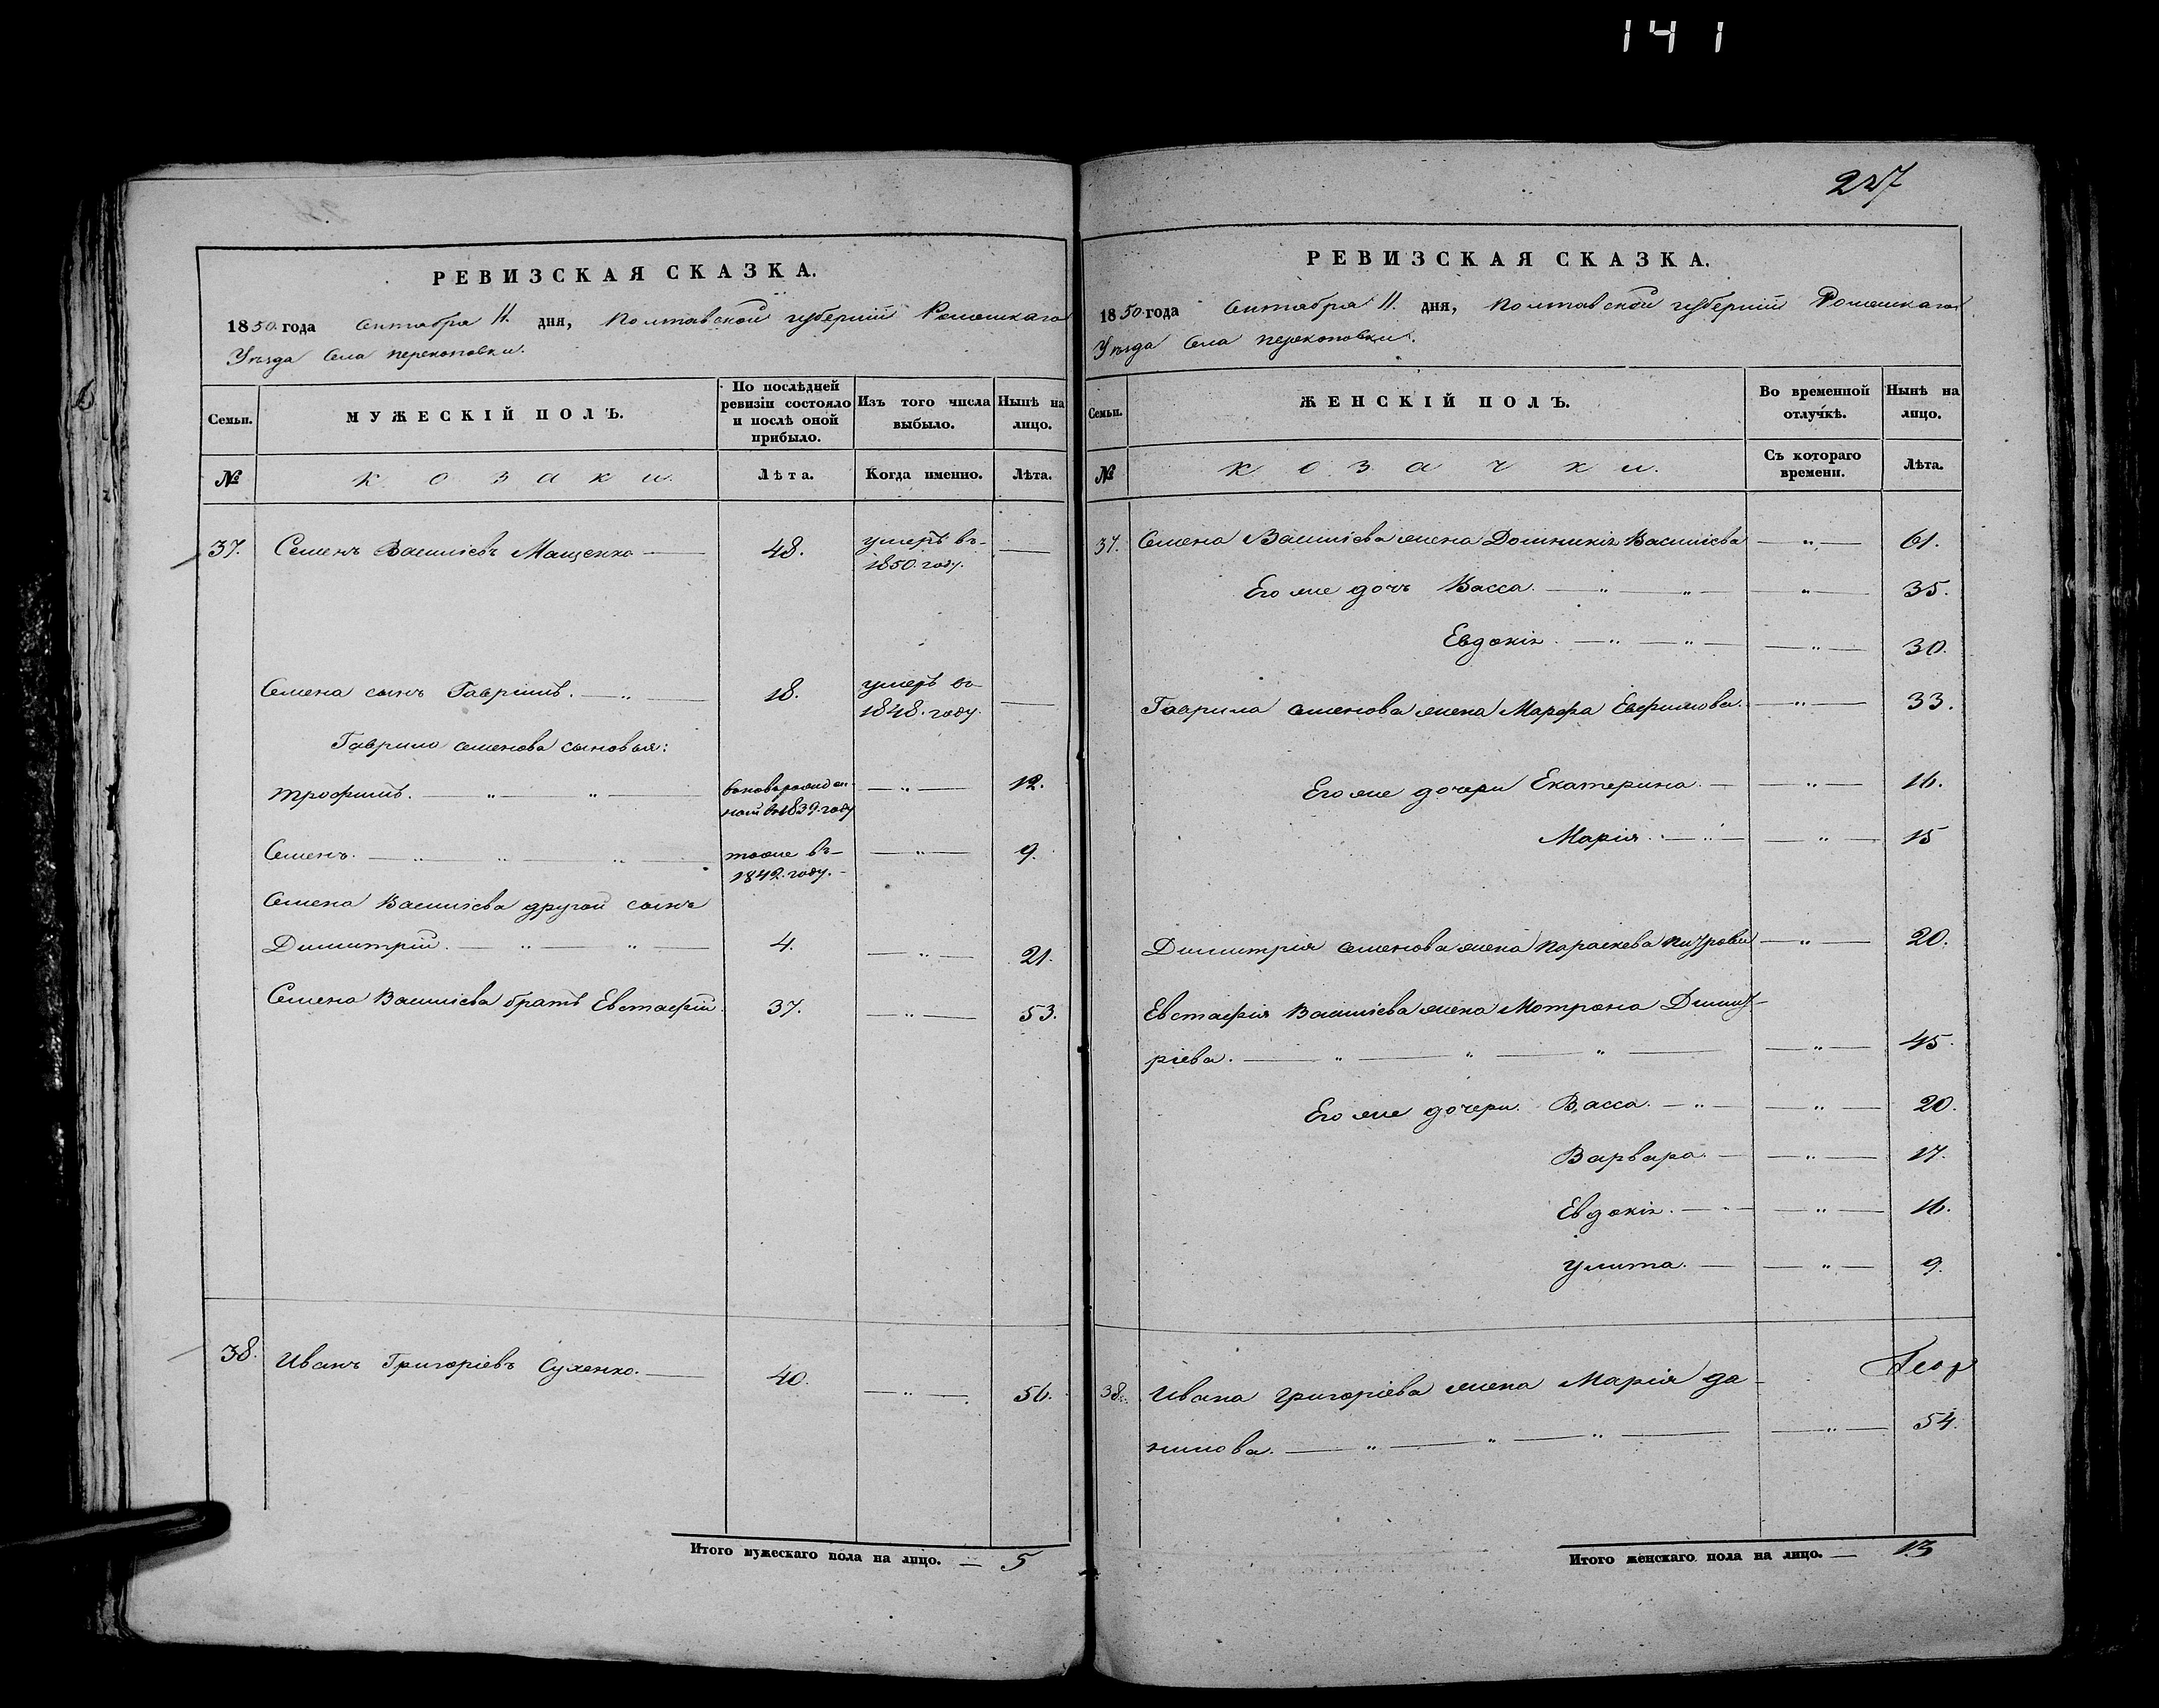 141
227
РЕВИЗСКАЯ СКАЗКА.
1850 года Сентября 11. дня, Полтавской губерніи Роменскаго
Уѣзда Села Перекоповки.
Семьи. МУЖЕСКІЙ ПОЛЪ. По послѣдней ревизіи состояло и послѣ оной прибыло. Изъ того числа выбыло. Нынѣ на лицо.
№ козаки. Лѣта. Когда именно. Лѣта.
37. Семенъ Васильевъ Мащенко — 48. умеръ въ 1850. году. —
Семена сынъ Гаврилъ. — 18. умеръ въ 1848. году. —
Гаврила семенова сыновья:
трофимъ. — новорожден ной въ 1839. году — 12.
Семенъ. — тоже въ 1842. году. — 9.
Семена Васильева другой сынъ
Димитрій. — 4. — 21.
Семена Васильева братъ Евстафій. 37. — 53.
38. Иванъ Григоріевъ Сухенко. — 40. — 56.
Итого мужескаго пола на лицо. — 5
РЕВИЗСКАЯ СКАЗКА.
1850 года Сентября 11. дня, Полтавской губерніи Роменскаго
Уѣзда Села Перекоповки.
Семьи. ЖЕНСКІЙ ПОЛЪ. Во временной отлучкѣ. Нынѣ на лицо.
№ козачки. Съ котораго времени. Лѣта.
37. Семена Васильева жена Домникія Васильева — 61.
Его же дочь Васса. — 35.
Евдокія. — 30.
Гаврила семенова жена Марфа Ефимова. — 33.
Его же дочери Екатерина. — 16.
Марія. — 15
Димитрія семенова жена Параскева Питрова — 20.
Евстафія Васильева жена Мотрона Димит-
ріева. — 45.
Его же дочери. Васса. — 20.
Варвара. — 17.
Евдокія. — 16.
Улита. — 9.
38. Ивана григоріева жена Марія да-
нилова. — 54.
Итого женскаго пола на лицо. — 13